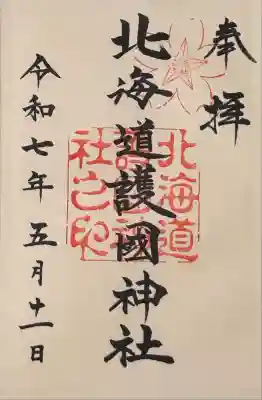 奉拝
北海道護國神社
令和七年五月十一日
北海道
護國神
社之印